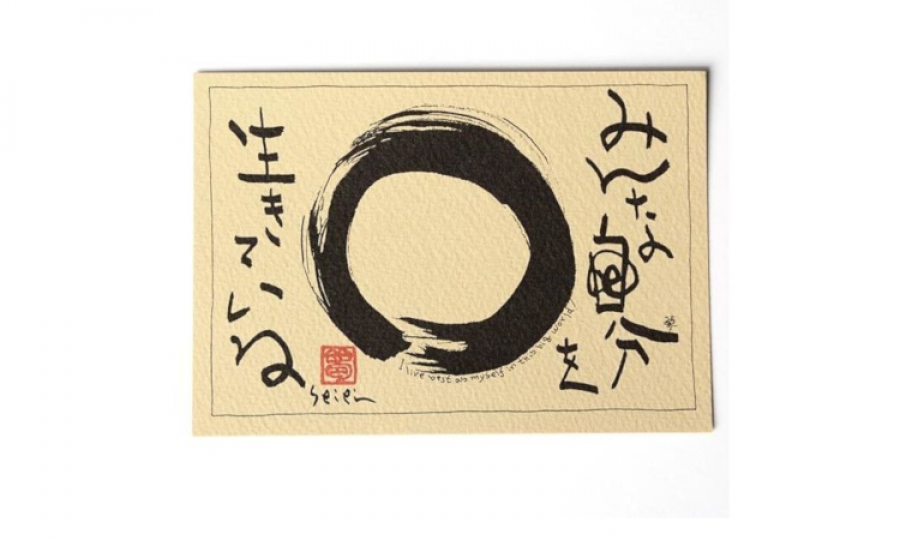 みんな
自分
を
生きている
I live best as myself in this big world!